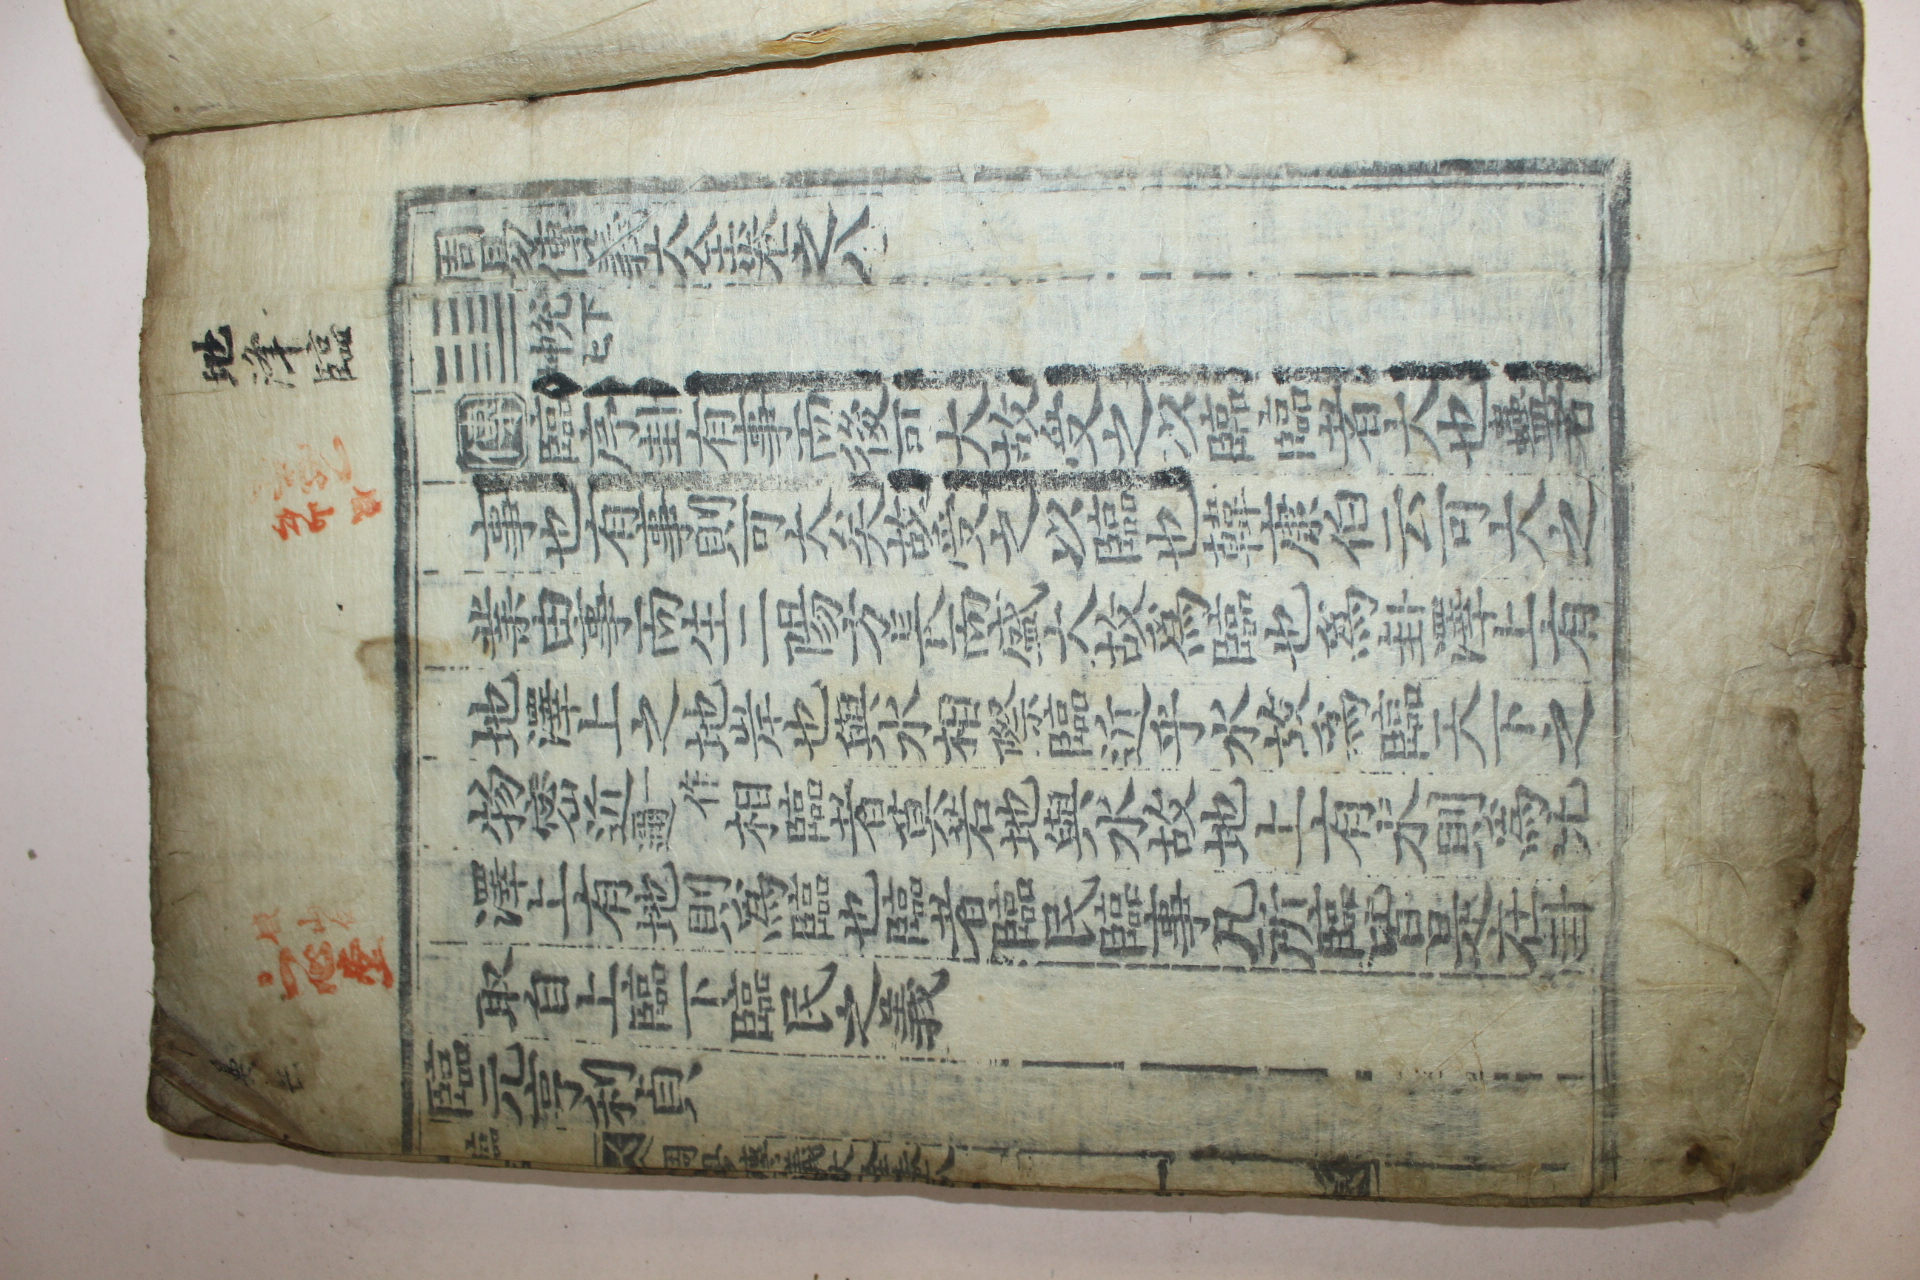 周易傳義大全卷之八
坤上 兌下
傳 臨序卦有事而後可大故受之以臨臨者大也蠱者
事也有事則可大矣故受之以臨也韓康伯云可大之
業由事而生二陽方長而盛大故爲臨也爲卦澤上有
地澤上之地岸也與水相際臨近乎水故爲臨天下之
物密近一作邇相臨者莫若地與水故地上有水則爲比
澤上有地則爲臨也臨者臨民臨事凡所臨皆是在卦
取自上臨下臨民之義
臨元亨利貞
周易傳義大全卷八
地澤臨